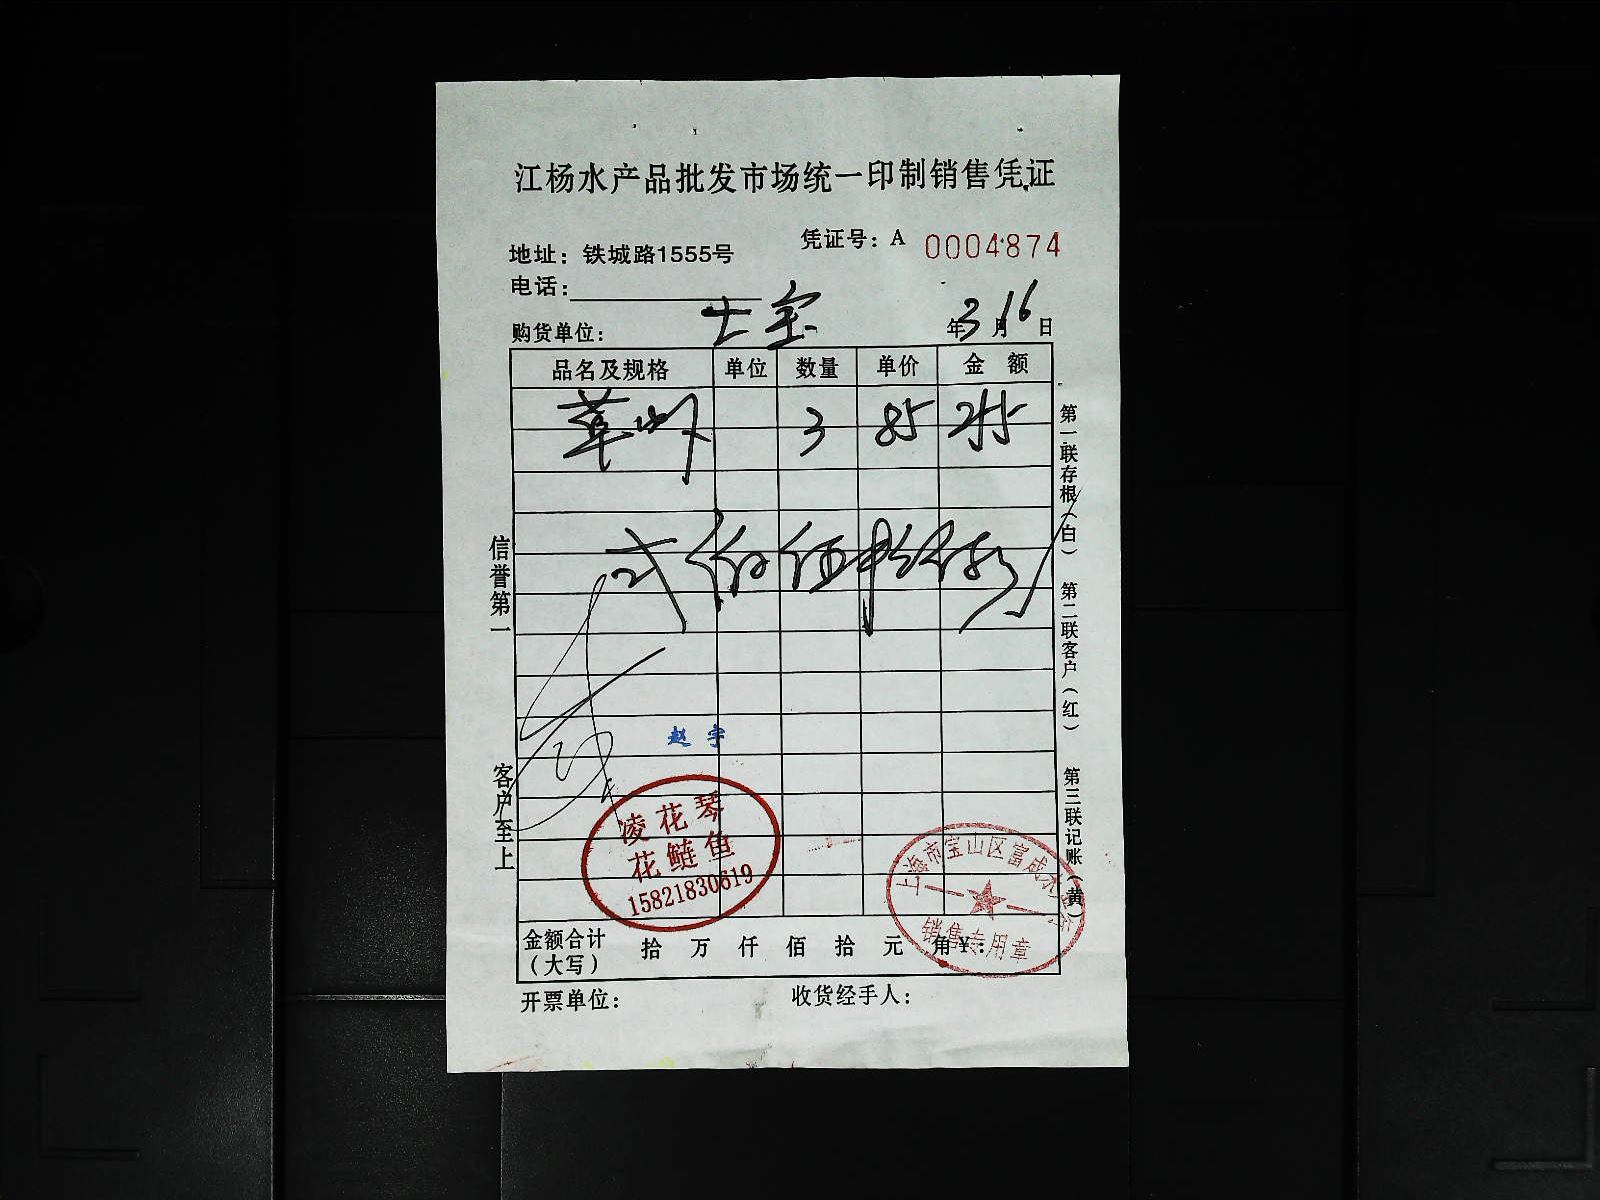 江杨水产品批发市场统一印制销售凭证
凭证号：A 0004874
地址：铁城路1555号
电话：
购货单位： 士宝 年3月16日
品名及规格 单位 数量 单价 金额
草虾 3 85 255
弍佰伍拾伍元
信誉第一
客户至上
第一联存根（白） 第二联客户（红） 第三联记账（黄）
赵宇
凌花琴
花鲢鱼
15821830619
上海市宝山区富成水产
销售专用章
金额合计（大写） 拾 万 仟 佰 拾 元 角 ¥：
开票单位： 收货经手人：